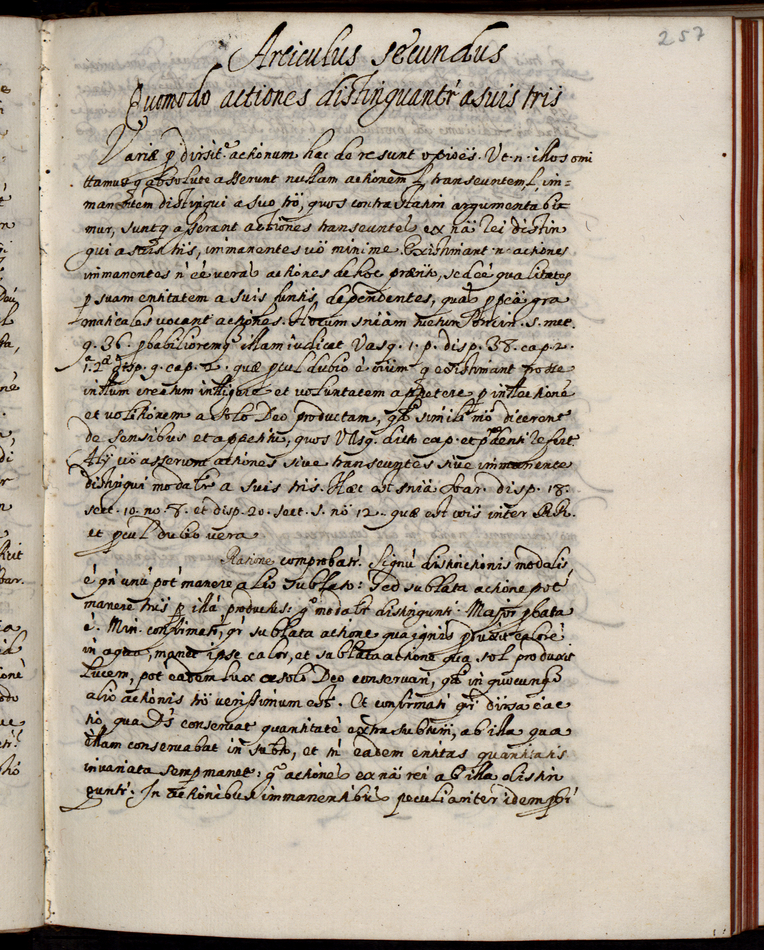 257
Articulus secundus
Quomodo actiones distinguantr̃ a suis tris
Variæ p̱ dirsit.e actionum hac de re sunt opiões. Ut. n. illos omi
ttamus q absolute asserunt nullam actionem l. transeuntem l. im=
manẽtem distingui a suo trõ, quos contra statim argumentabi
mur, sunt q asserant actiones transeuntes ex nã rei distin
gui a suis tris, immanentes uõ minime. Existimant .n. actiones
immanentes ñ ẽe veras actiones de hoc præiito, sed ẽe qualitates
p̱ suam entitatem a suis dependentes, quas gra
maticales vocant actiones. Horum sniam Meter. 5. met.
q. 36. p̱babilioremq̃ illam iudicat Vasq. 1. p. disp. 38. cap. 2.
1.a 2.æ disp. 9. cap. 2. quæ p̱cul dubio ẽ oium q existimant posse
intllum creatum intlligere et voluntatem appetere p̱ intllectionẽ
et volitionem a solo Deo productam, simili mõ dicerent
de sensibus et appetitu, quos Vasq. dicto cap. et refert
Alij uõ asserunt actiones siue transeuntes siue immanente
distingui modalr̃ a suis tris. Hæc est sniã Soar. disp. 18.
sect. 10. no. 8. et disp. 20. sect. 5. nõ 12. quæ est inter RR.
et p̱cul dubio vera
Ratione comprobatr̃. Signũ distinctionis modalis
ẽ qñ unũ pot manere alio sublato: Sed sublata actione pot
manere tris p̱ illã productus: g.o modalr̃ distinguntr̃. Maior p̱bata
ẽ. Min. confirmatr̃, qr̃ sublata actione qua ignis p̱duxit calorẽ
in aqua, manet ipse calor, et sublata actione qua sol produxit
lucem, pot eadem lux a solo Deo conservari, in quocunq̃
alio actionis trõ verissimum est. Et confirmatr̃ qr̃ diuersa ẽ ac
tio, qua D̃s conseruat quantitatẽ extra subtũ, ab illa qua
illam conseruabat in subto, et tñ eadem entitas quantitatis
inuariata semp̱ manet: g.o actiones ex nã rei ab illa distin
guntr̃. In actionibus immanentibus peculiariter idem p̱bi